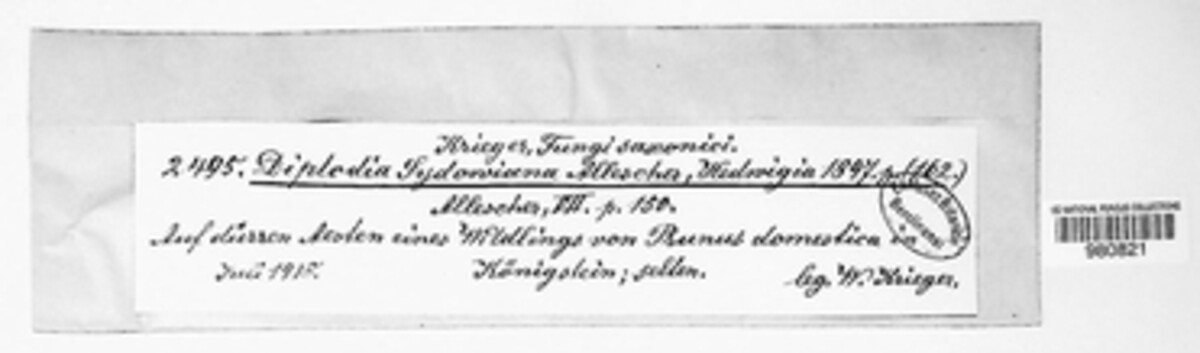 Krieger, Fungi saxonici.
2495. Diplodia Sydowiana Allescher, Hedwigia 1897 p. (162.)
Allescher, VII. p. 150.
Auf dürren Aesten eines Wildlings von Prunus domestica
Juli 1915. Königstein; selten. leg. W. Krieger.
US NATIONAL FUNGUS COLLECTIONS
980821